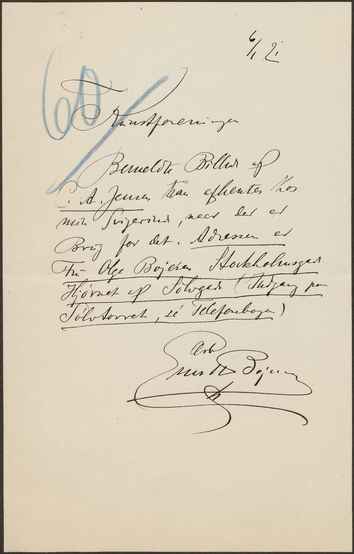 6/1 21
60
Til Kunstforeningen
Bemeldte Billed af
C. A. Jensen kan afhentes hos
min Svigerinde, naar der er
Brug for det. Adressen er
Fru Olga Bojesen Stockholmsgade
Hjörnet af Sölvgade (Indgang paa
Sölvtorvet, se Telefonbogen)
Ærb.
Ernst Bojesen